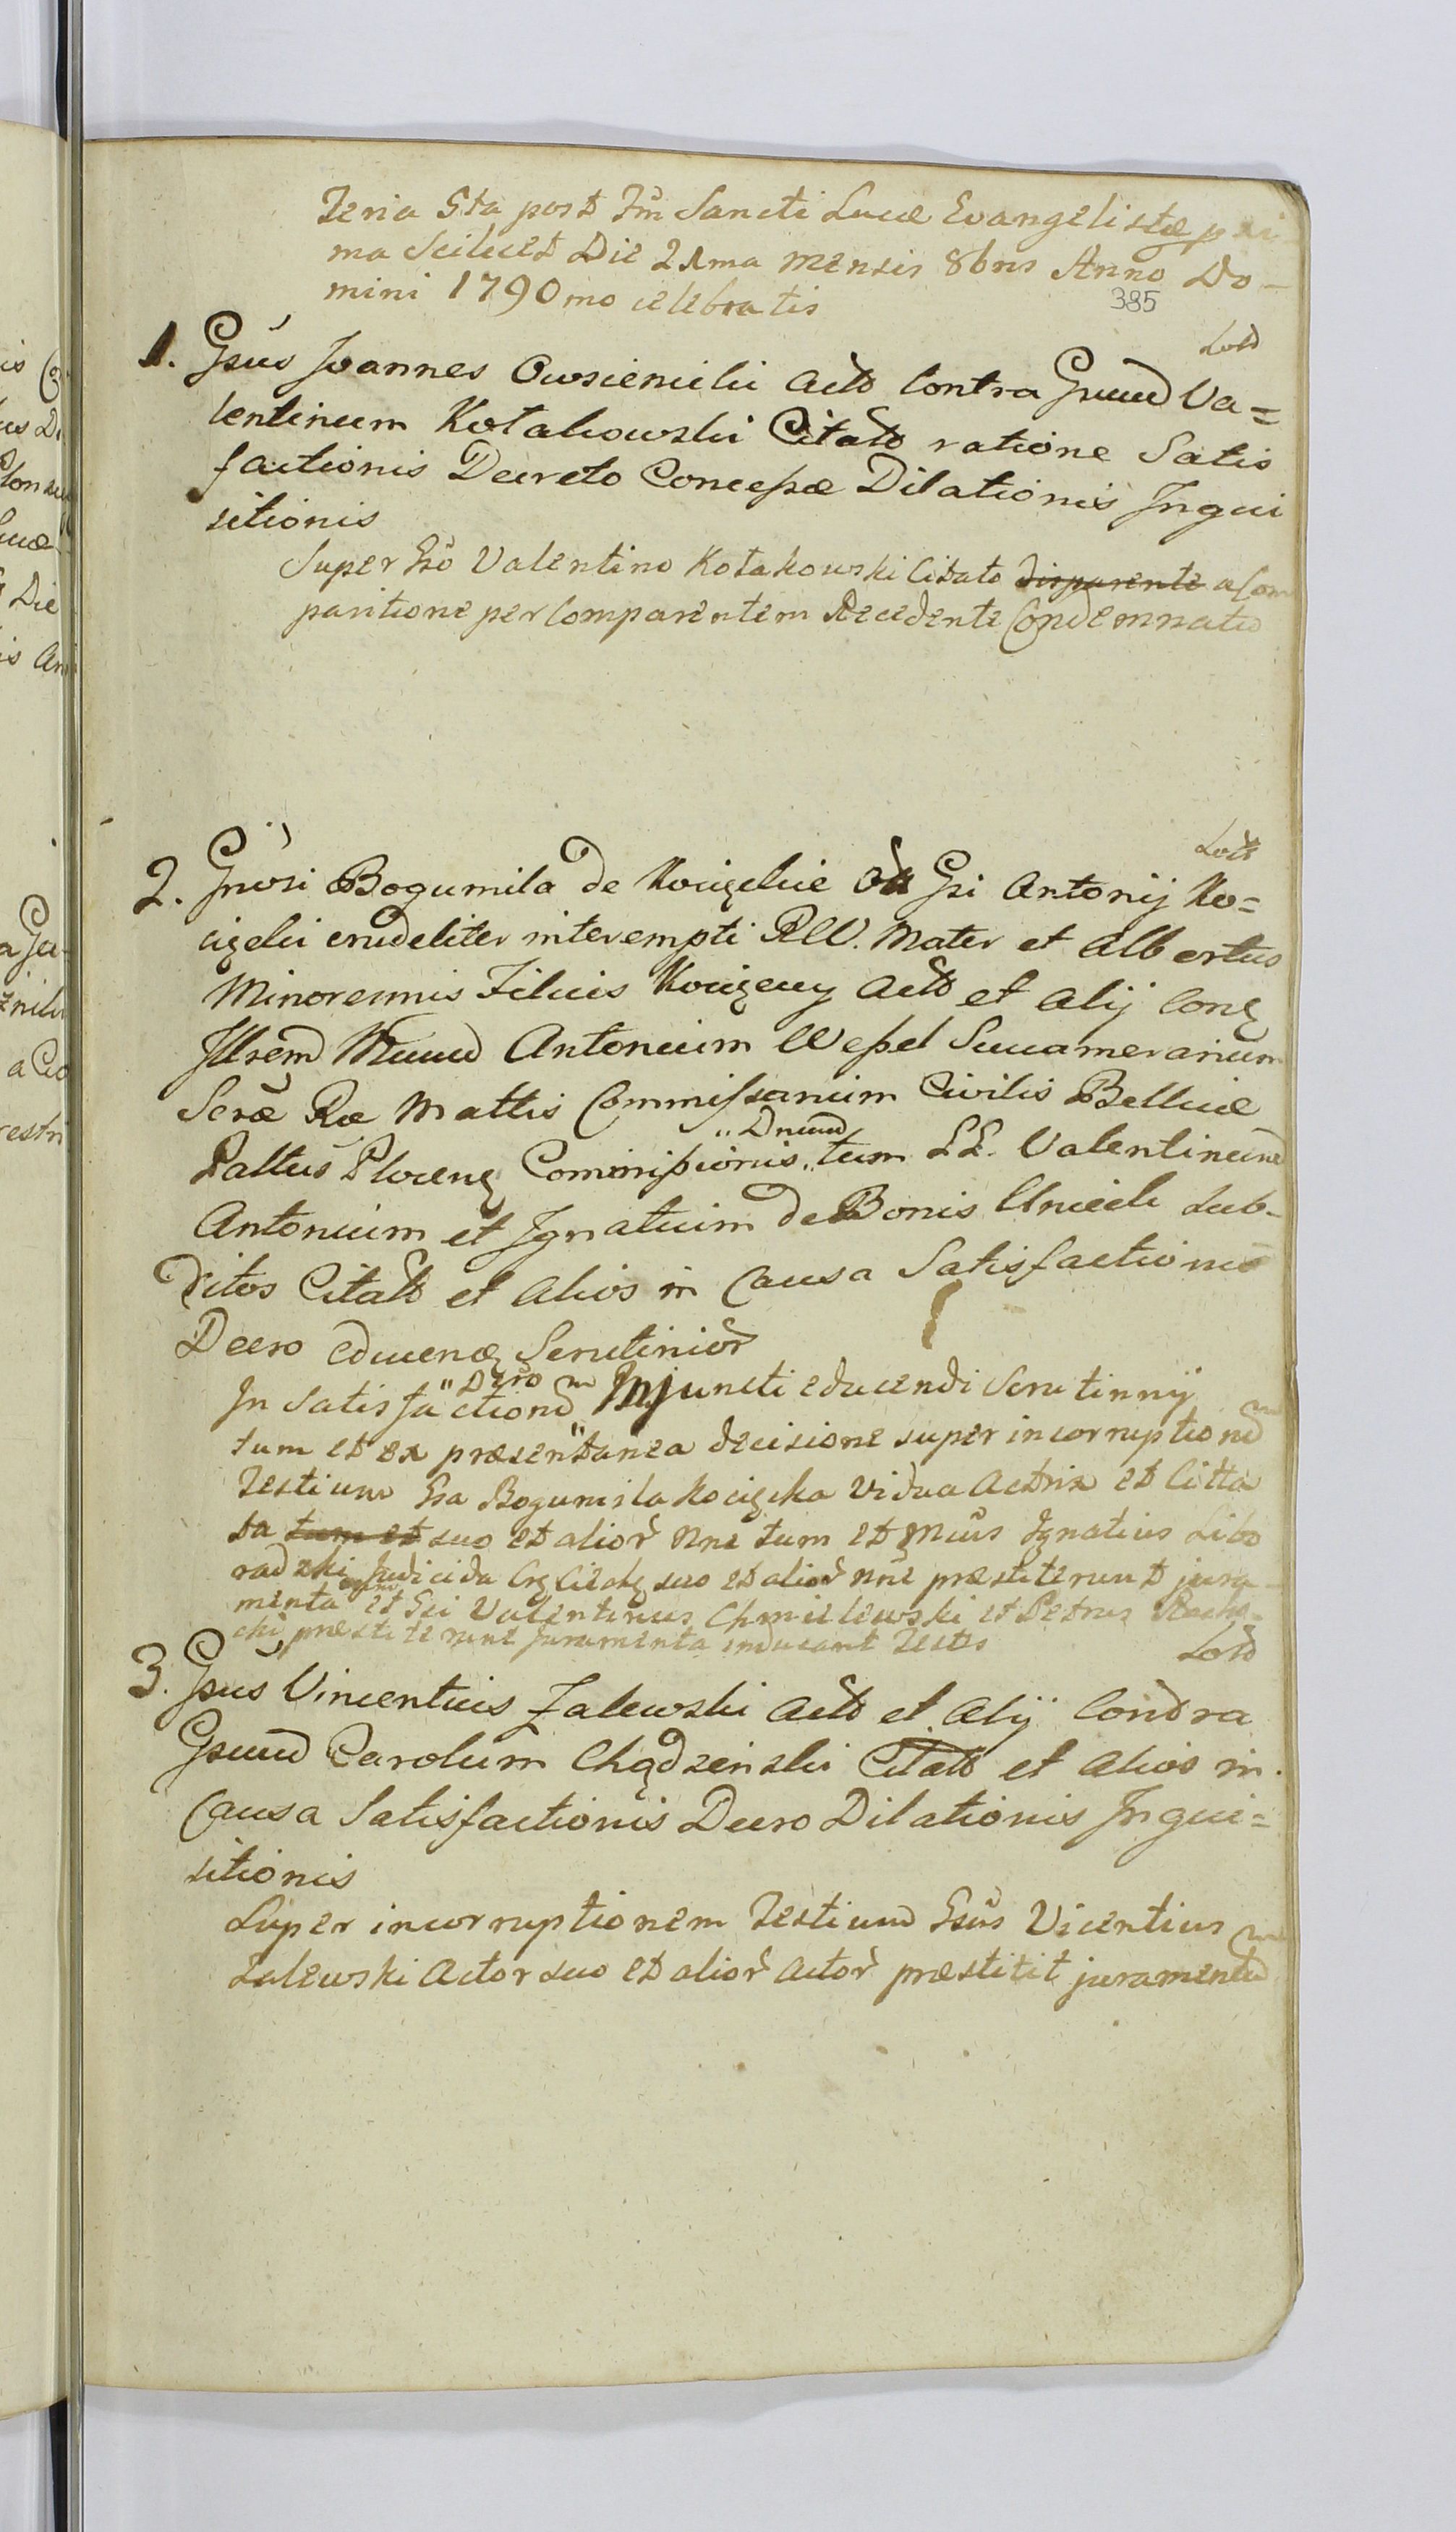 Feria 5ta post Fm Sancti Lucæ Evangelistæ pri-
ma Scilicet Die 21ma mensis 8bris Anno Do-
mini 1790mo celebratis
385
1. Gsus Joannes Owsienicki Act Contra Gnum Va=
lentinum Kotakowski Citat ratione Satis
factionis Decreto Concessæ Dilationis Inqui
sitionis
Super Gso Valentino Kotakowski Citato disparente a Com
paritione per Comparentem Recedente Condemnatio
2. Gnosi Bogumila de Kocięckie Gsi Antonij Ko=
cięcki crudeliter interempti Mater et Albertus
Minorennis Filius Kocięccy Act et alij Conȝ
Illrem Mnum Antonium Wessel Succamerarium
Scræ Ræ Mattis Commissarium Civilis Bellicæ
Pallus Plocenȝ Commissionis „tum LL. Valentinum
„Dnum
Antonium et Ignatium de Bonis Unieck Sub-
ditos Citat et Alios in Causa Satisfactionis
Decro educenȝ Scrutinior
In Satisfactione „Dcro Injuncti educendi Scrutinnij
tum et ex præsentanea decisione super incorruptione
Testium Gsa Bogumila Kocięcka Vidua Actrix et Citta
ta tum et suo et alior nne tum et Mcus Ignatius Libo
radzki Judicida Crȝ Ciechȝ suo et alior nne præstiterunt jura-
menta et Gsi Valentinus Chmielewski et Petrus
præstiterunt juramenta inducant Testes
3. Gsus Vincentius Zalewski Act et Alij Contra
Gsum Carolum Chądzenski Citat et Alios in
Causa Satisfactionis Decro Dilationis Inqui=
sitionis
Super incorruptionem Testium Gsus Vicentius
Zalewski Actor suo et alior Actor præstitit juramentum